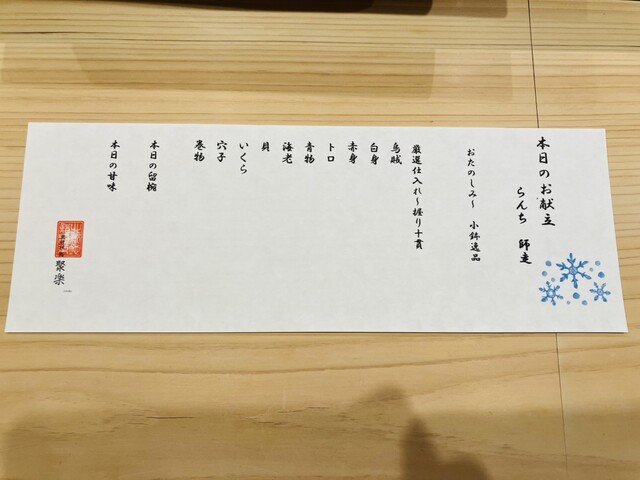 本日のお献立
らんち 師走
おたのしみ〜 小鉢逸品
厳選仕入れ〜握り十貫
烏賊
白身
赤身
トロ
青物
海老
貝
いくら
穴子
巻物
本日の留椀
本日の甘味
聚楽